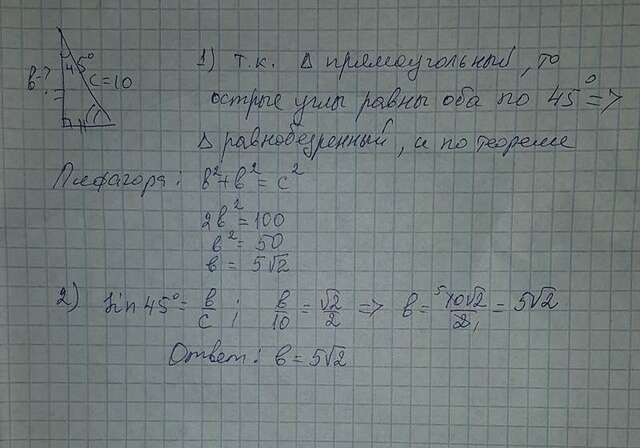 45°
b-?
c=10
1) т.к. Δ прямоугольный, то
острые углы равны оба по 45° =>
Δ равнобедренный, и по теореме
Пифагора: b²+b² = c²
2b² = 100
b² = 50
b = 5√2
2) Sin 45° = b/c ; b/10 = √2/2 => b = 5 10√2/2 1 = 5√2
Ответ: b = 5√2